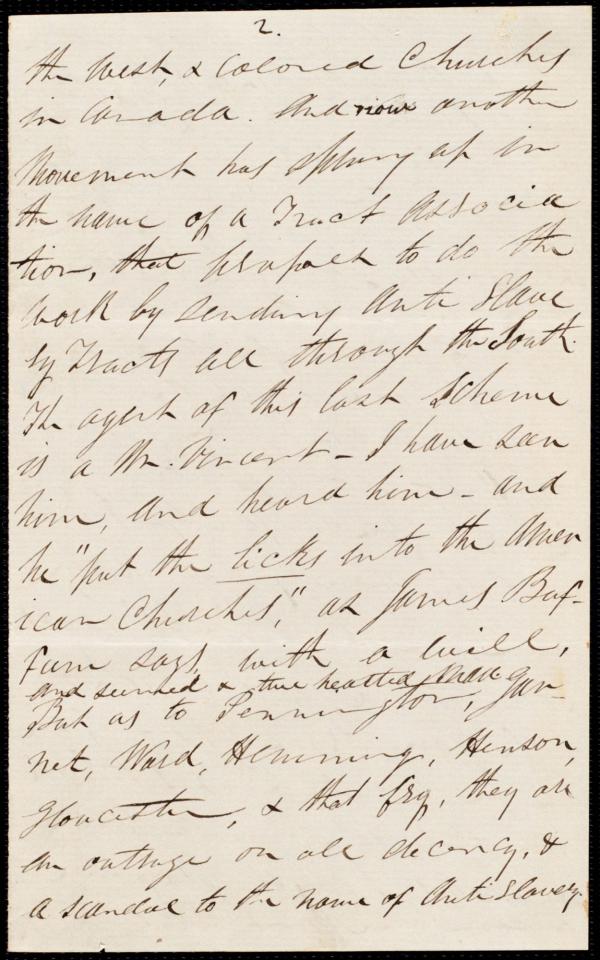 2.
the West, & Colored Churches
in Canada. And now another
movement has sprung up in
the name of a Tract Associa
tion, that proposes to do the
work by sending Anti Slave
ry Tracts all through the South.
The agent of this last scheme
is a Mr. Vincent - I have seen
him, and heard him - and
he "put the licks into the Amer
ican Churches," as James Buf-
fum says, with a will,
and seemed a true hearted man.
But as to Pennington, Gar-
net, Ward, Hemming, Henson,
Gloucester, & that fry, they are
an outrage on all decency, &
a scandal to the name of Anti Slavery.